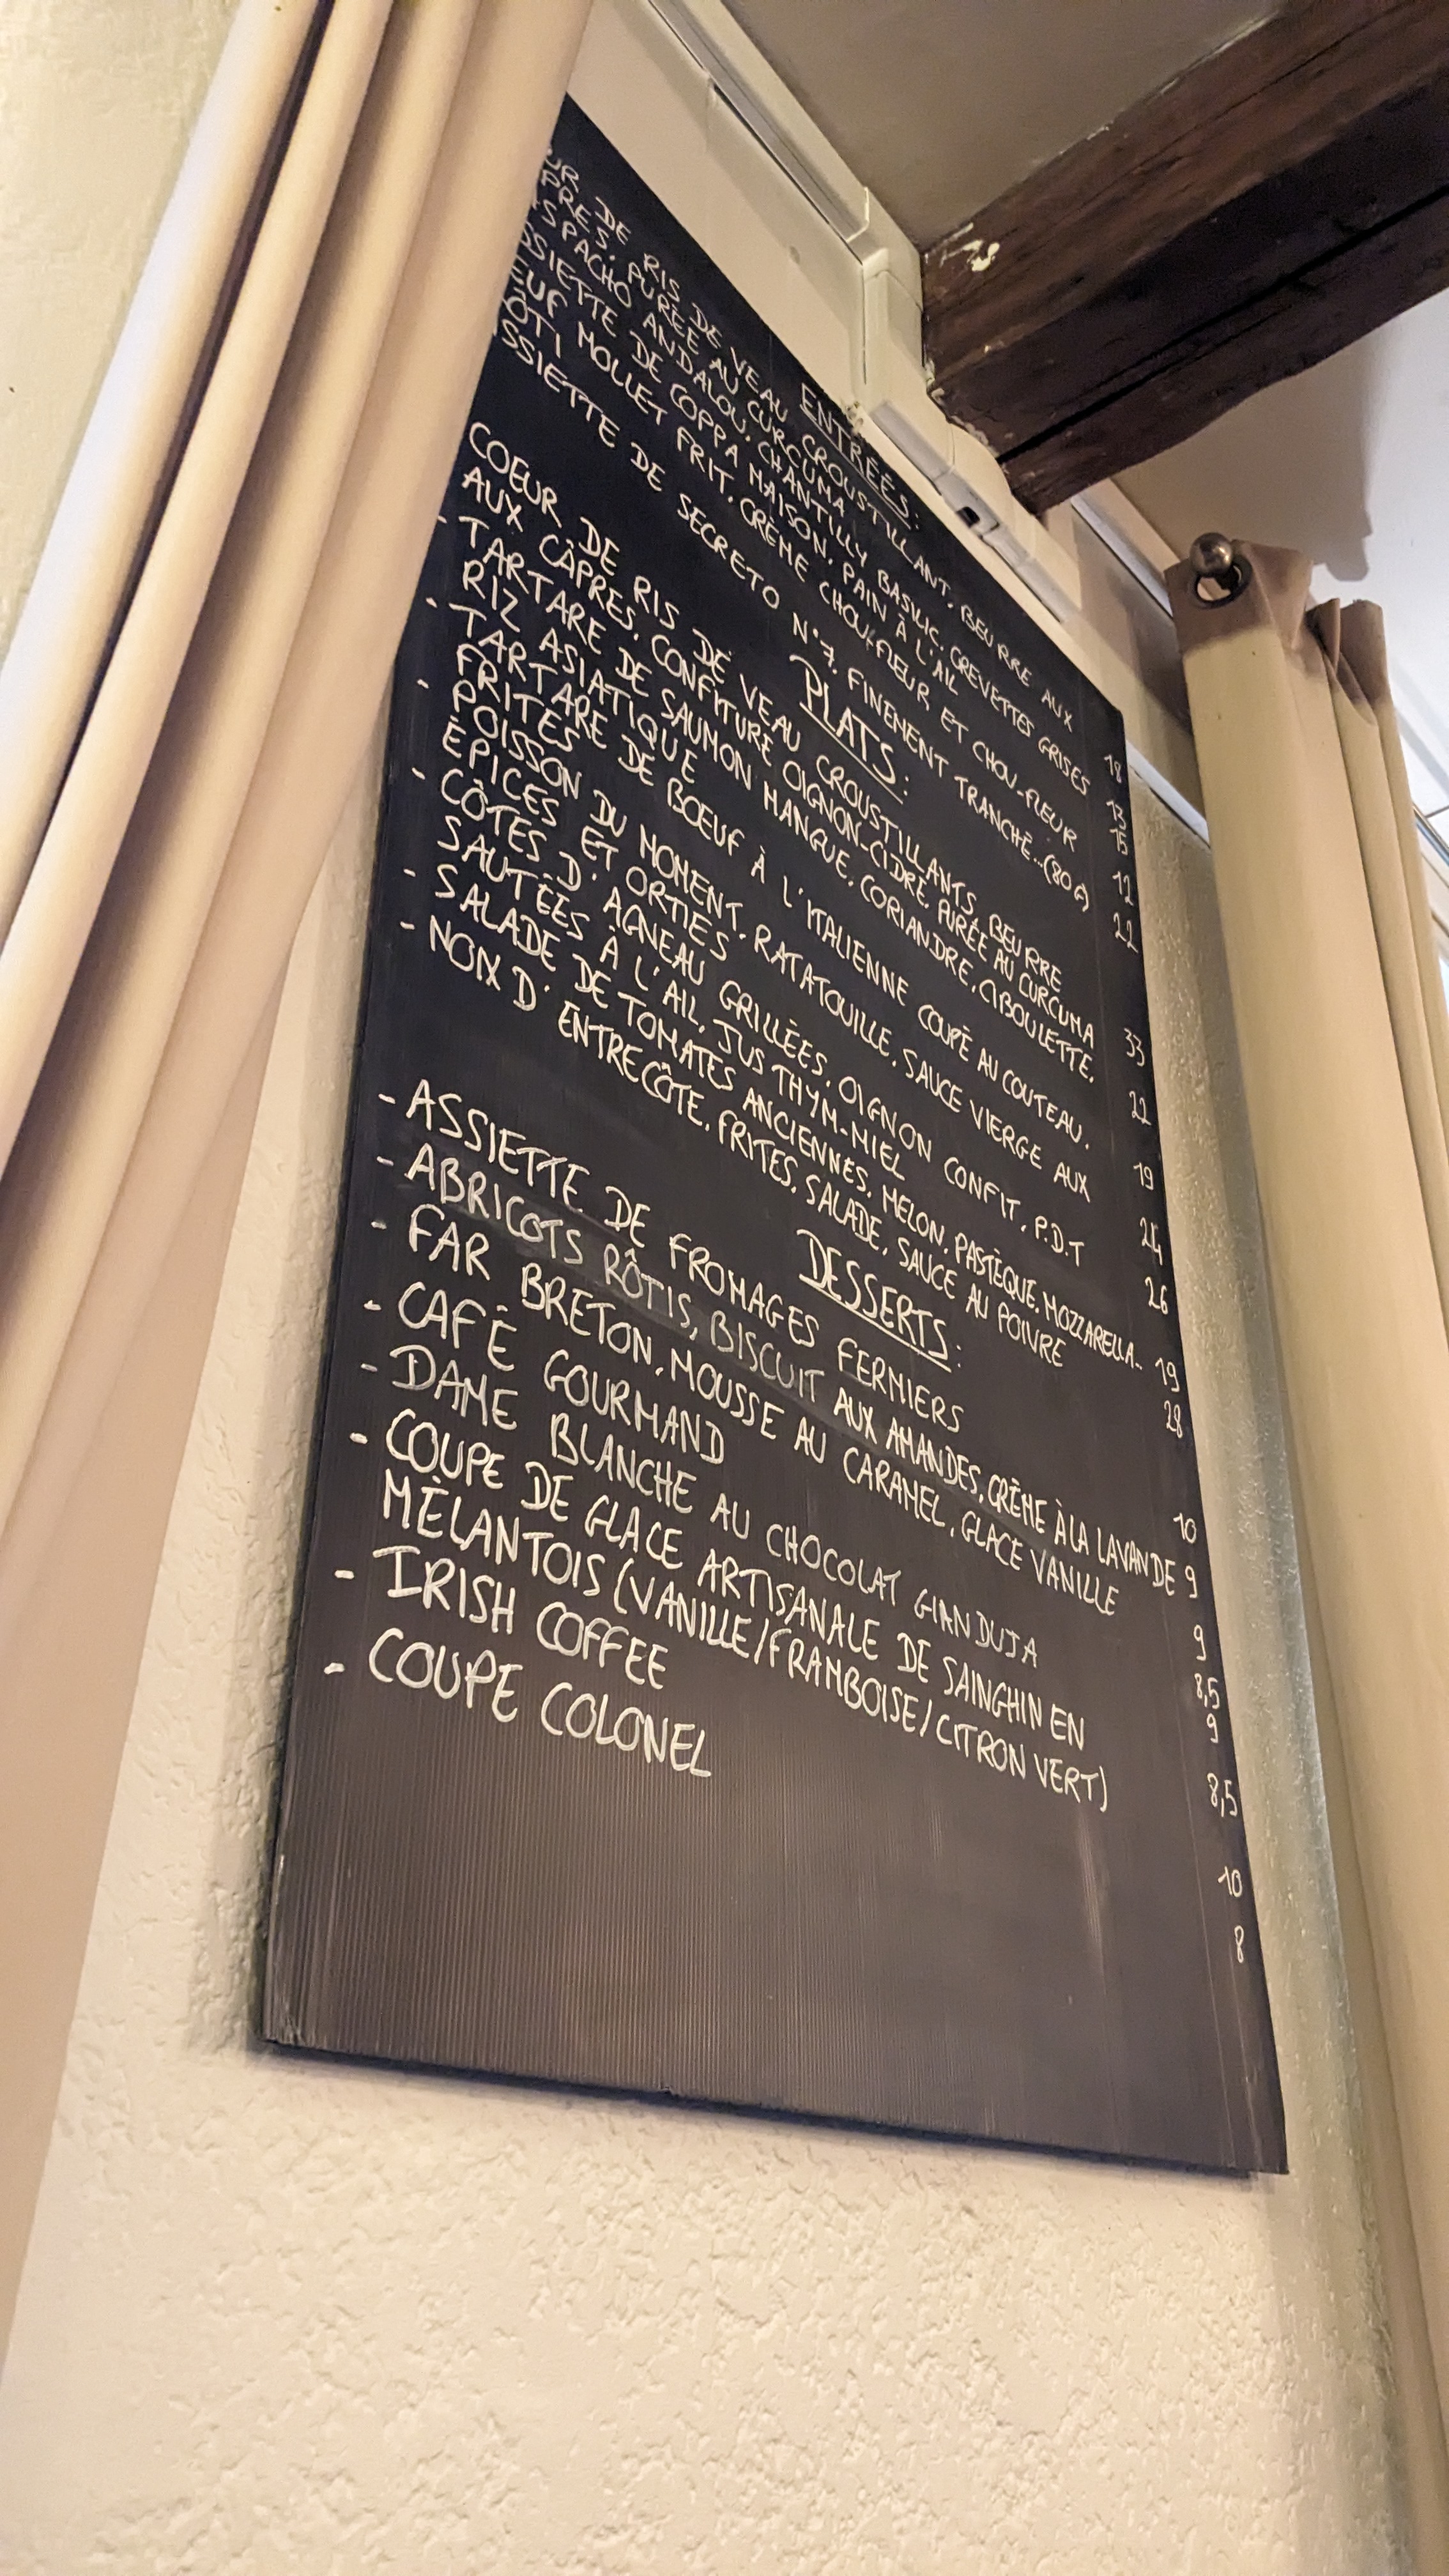 ENTRÉES:
DE RIS DE VEAU CROUSTILLANT. BEURRE AUX
PURÉE AU CURCUMA 18
ANDALOU. CHANTILLY BASILIC. CREVETTES GRISES 13
DE COPPA MAISON. PAIN À L'AIL 15
MOLLET FRIT. CRÈME CHOU-FLEUR ET CHOU-FLEUR
12
DE SECRETO N°7. FINEMENT TRANCHÉ...(80G) 22
PLATS:
COEUR DE RIS DE VEAU CROUSTILLANTS. BEURRE
AUX CÂPRES. CONFITURE OIGNON-CIDRE. PURÉE AU CURCUMA 33
- TARTARE DE SAUMON MANGUE. CORIANDRE. CIBOULETTE.
RIZ ASIATIQUE 22
- TARTARE DE BŒUF À L'ITALIENNE COUPÉ AU COUTEAU.
FRITES 19
- POISSON DU MOMENT. RATATOUILLE. SAUCE VIERGE AUX
ÉPICES ET ORTIES 24
- CÔTES D'AGNEAU GRILLÉES. OIGNON CONFIT. P.D.T
SAUTÉES À L'AIL. JUS THYM-MIEL 26
- SALADE DE TOMATES ANCIENNES. MELON. PASTÈQUE. MOZZARELLA.. 19
- NOIX D'ENTRECÔTE. FRITES. SALADE. SAUCE AU POIVRE 28
DESSERTS:
- ASSIETTE DE FROMAGES FERMIERS 10
- ABRICOTS RÔTIS, BISCUIT AUX AMANDES, CRÈME À LA LAVANDE 9
- FAR BRETON. MOUSSE AU CARAMEL. GLACE VANILLE 9
- CAFÉ GOURMAND 8,5
- DAME BLANCHE AU CHOCOLAT GIANDUJA 9
- COUPE DE GLACE ARTISANALE DE SAINGHIN EN
MÉLANTOIS (VANILLE/FRAMBOISE/CITRON VERT) 8,5
- IRISH COFFEE 10
- COUPE COLONEL 8